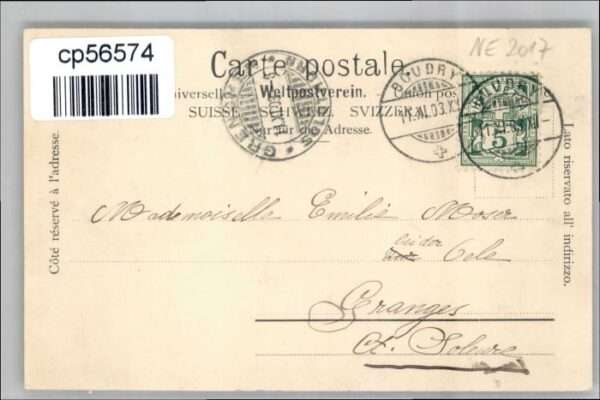 cp56574
NE 2017
Carte postale.
Weltpostverein.
SUISSE SCHWEIZ SVIZZERA
Nur für die Adresse.
BOUDRY
11.XI.03.XII
BOUDRY
5
Côté réservé à l'adresse.
Lato riservato all' indirizzo.
Mademoiselle Emilie Moser
Granges
Ct. Soleure